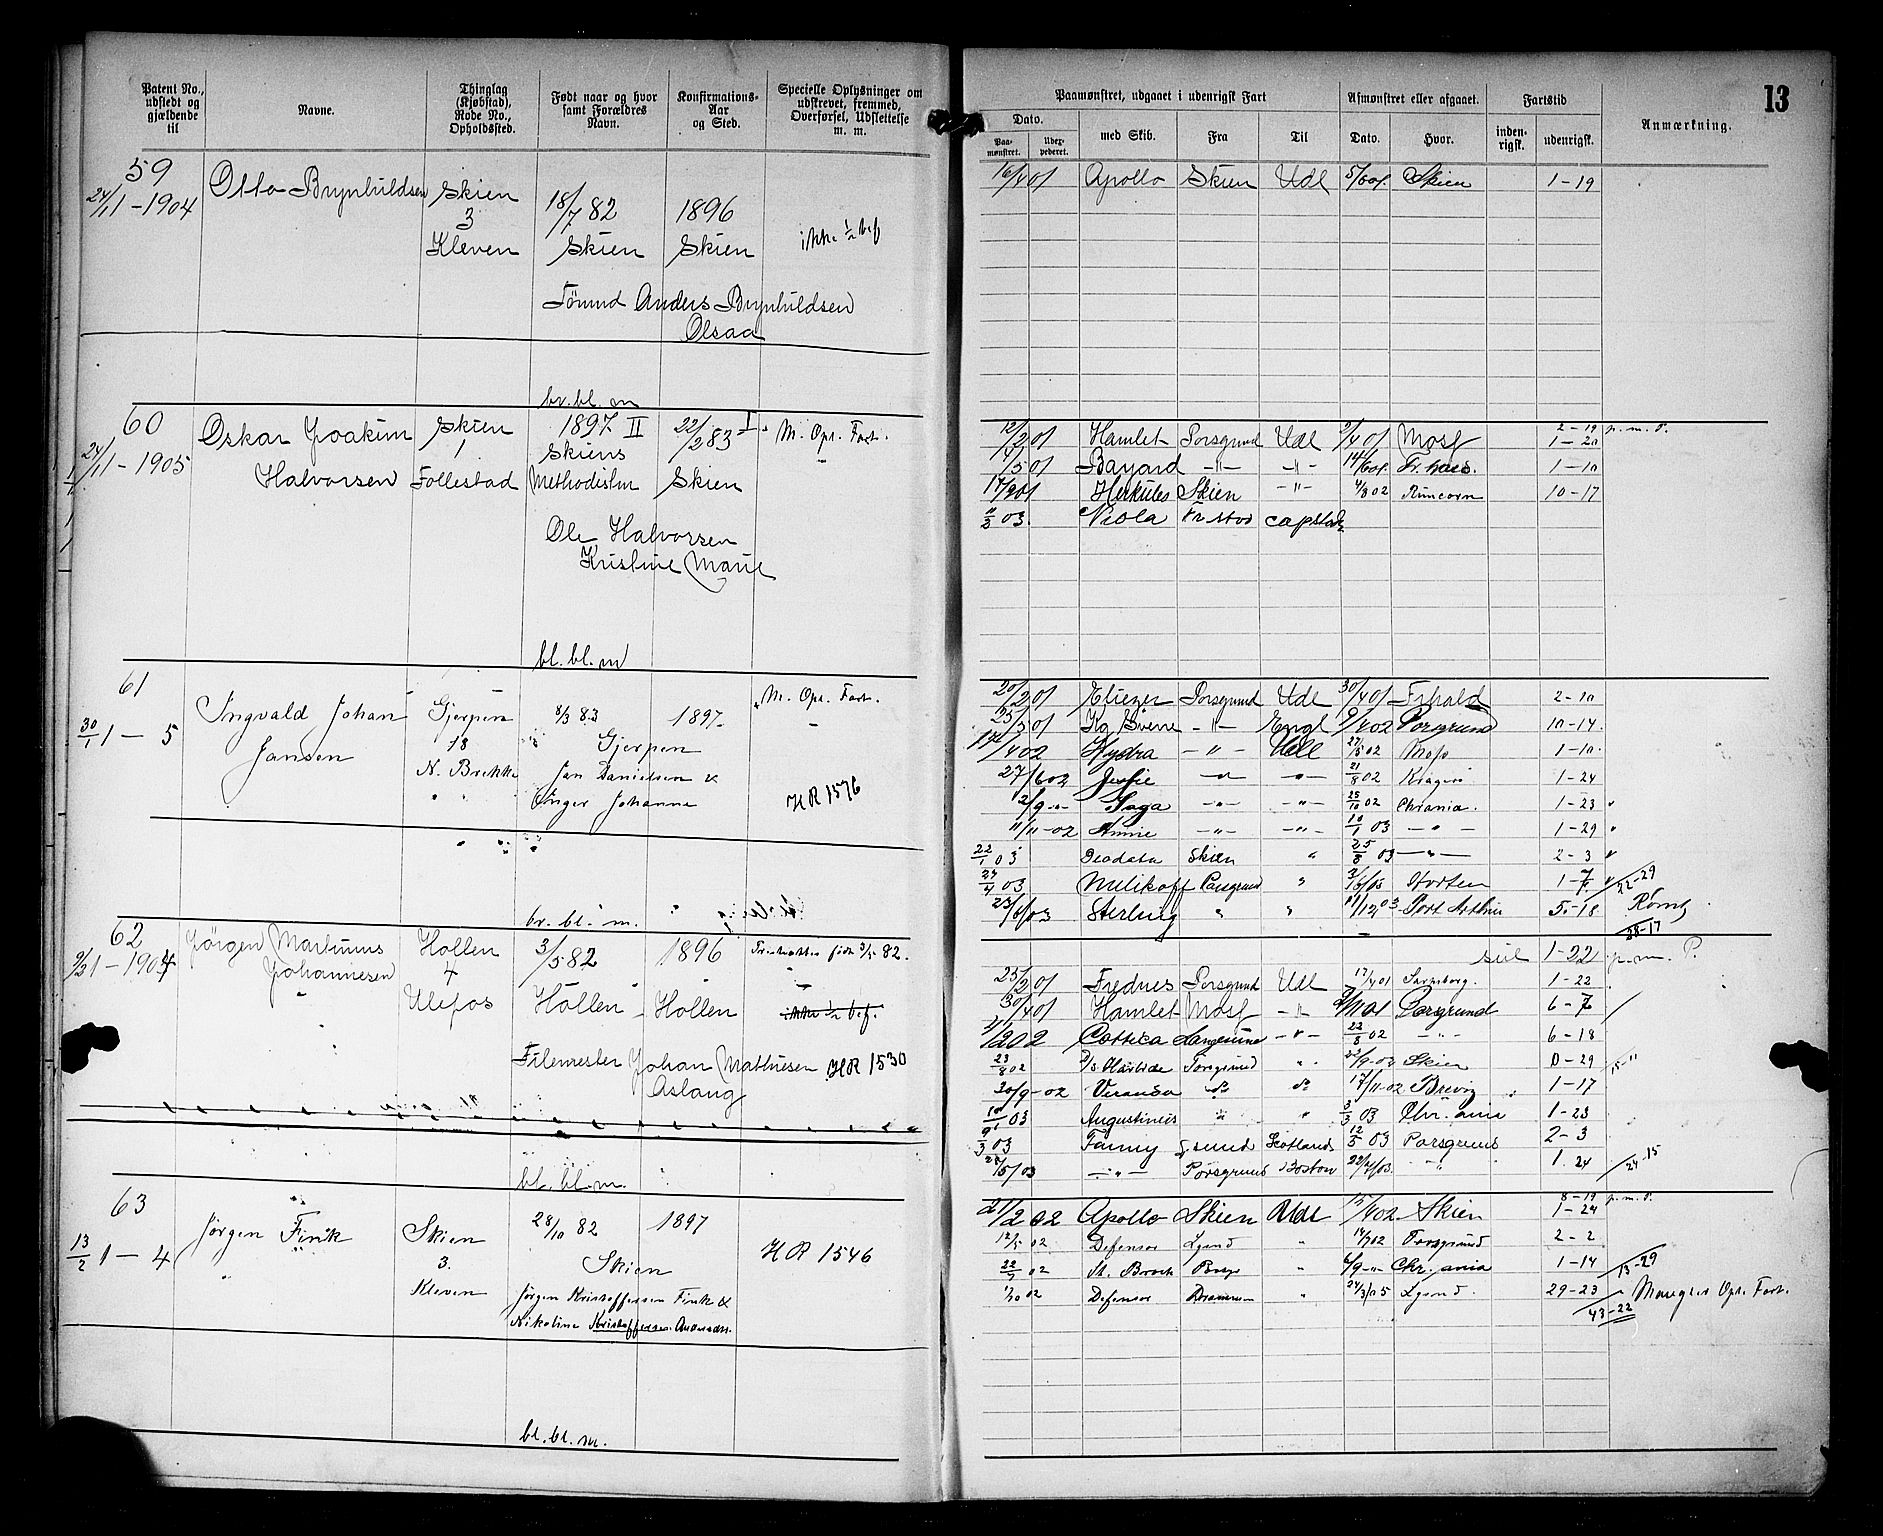 Patent No., udstedt og gjældende til
Navne.
Thinglag (Kjøbstad), Rode No., Opholdssted.
Født naar og hvor samt Forældres Navn.
Konfirmations-Aar og Sted.
Specielle Oplysninger om udskrevet, fremmed, Overførsel, Udslettelse m. m.
59
24/11-1904
Otto Brynhuldsen
Skien
3
Kleven
18/7 82
Skien
1896
Skien
ikke ½ bef
Anders Brynhuldsen
Olsaa
br. bl. m
60
24/11-1905
Oskar Joakim
Halvorsen
Skien
1
Follestad
1897 II
Skiens
Methodistm
22/2 83 I
Skien
M. Opr. Fart.
Ole Halvorsen
Kristine Marie
bl. bl. m
61
30/1 1-5
Ingvald Johan
Jansen
Gjerpen
18
N. Brekke
8/3 83
Gjerpen
Jan Danielsen &
Inger Johanne
1897
M. Opr. Fart.
HR 1576
br. bl. m.
62
9/2 1-1904
Jörgen Martinius
Johannesen
Hollen
4
Ulefos
3/5 82
Hollen
1896
Hollen
født 3/5 82.
ikke ½ bef.
Johan Mathiesen
Aslaug
HR 1530
bl. bl. m.
63
13/2 1-4
Jørgen Fink
Skien
3.
Kleven
28/10 82
Skien
Jørgen Kristoffersen Fink &
Nikoline Kristoffersen Andersdtr.
1897
HR 1546
bl. bl. m.
13
Paamønstret, udgaaet i udenrigsk Fart
Afmønstret eller afgaaet.
Fartstid
Anmærkning.
Dato.
Paamønstret.
med Skib.
Fra
Til
Dato.
Hvor.
indenrigsk.
udenrigsk.
16/4 01 Apollo Skien Udl 5/6 01. Skien 1-19
2-19 p. m. P.
12/2 01 Hamlet Porsgrund Udl 9/4 01 Moss 1-20
4/5 01 Bayard -"- -"- 14/6 01. 1-10
17/9 01 Herkules Skien -"- 4/8 02 Runcorn 10-17
11/2 03. Viola Fr.stad
20/2 01 Eliezer Porsgrund Udl 30/4 01 Frhald 2-10
23/5 01 Kg. Sverre -"- Engl 9/4 02 Porsgrund 10-14.
14/4 02 Hydra -"- Udl 27/5 02 Moss 1-10.
27/6 02 Jessie 21/8 02 Kragerø 1-24
2/9 -"- Saga -"- -"- 25/10 02 Chrania. 1-23
11/11-02 Annie -"- -"- 10/1 03 -"- 1-29
22/1 03 Deodata Skien " 25/8 03 -"- 2-3
27/4 03 Melikoff Porsgrund " Horten 1-7
22-29
23/6/03 Sterling " " 11/12 03 Port Arthur 5-18
Rømt
28-17
seil 1-22 p. m. P.
25/2 01 Frednes Porsgrund Udl 17/4 01 Sarpsborg. 1-22
30/4 01 Hamlet Moss -"- Porsgrund 6-7
Cottica Langesund -"- 22/8 02 -"- 6-18
23/8 02 Porsgrund " 22/9-02 Skien 0-29
30/9-02 Veranda 17/11-02 Brevig 1-17
10/1 03 Augustinus " " 3/3 03 Chr. ania 1-23
9/3 03 Fanny Scotland 12/5 03 Porsgrund 2-3
-"- Porsgrund Boston 1. 24
24-15
8-19 p. m. P.
21/2 02 Apollo Skien Udl 15/4 02 Skien 1-24
12/5 02 Defensor Lgsnd " 14/7 02 Porsgrund 2-2
22/7 02 St. Brock " 6/9 -"- Chr. ania 1-14
13-29
1/10 02 Defensor Drammen " 24/3/05 Lgsnd. 29-23
43-22
Mangler Opr. Fart.